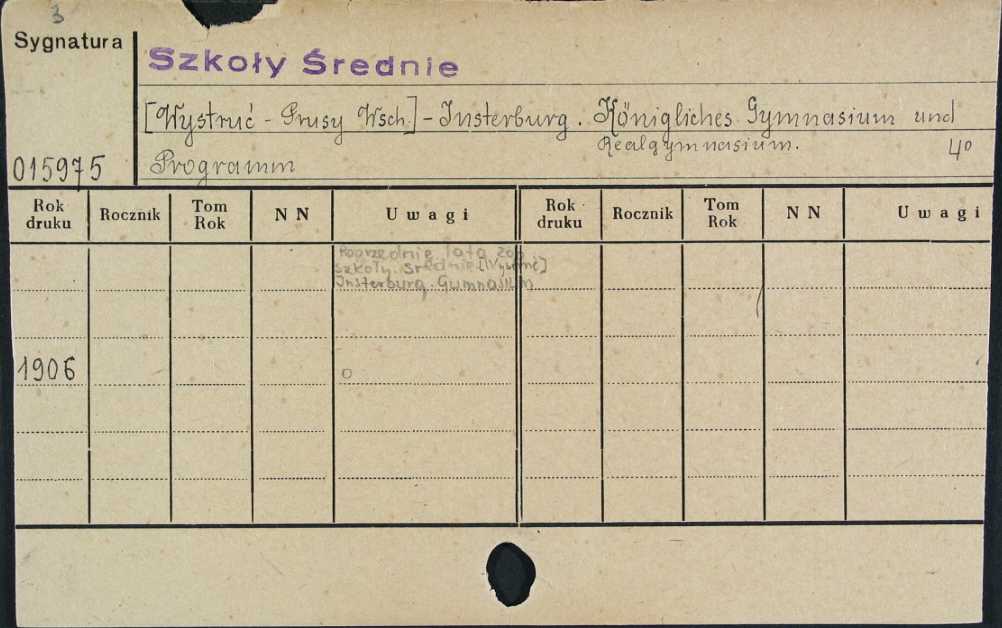 3
Sygnatura
Szkoły Średnie
[Wystruć - Prusy Wsch.] - Insterburg. Königliches Gymnasium und
Realgymnasium. 4º
015975
Programm
Rok druku Rocznik Tom Rok N N Uwagi Rok druku Rocznik Tom Rok N N Uwagi
Poprzednie lata zob.
szkoły Średnie [Wystruć]
Insterburg. Gymnasium
1906 o